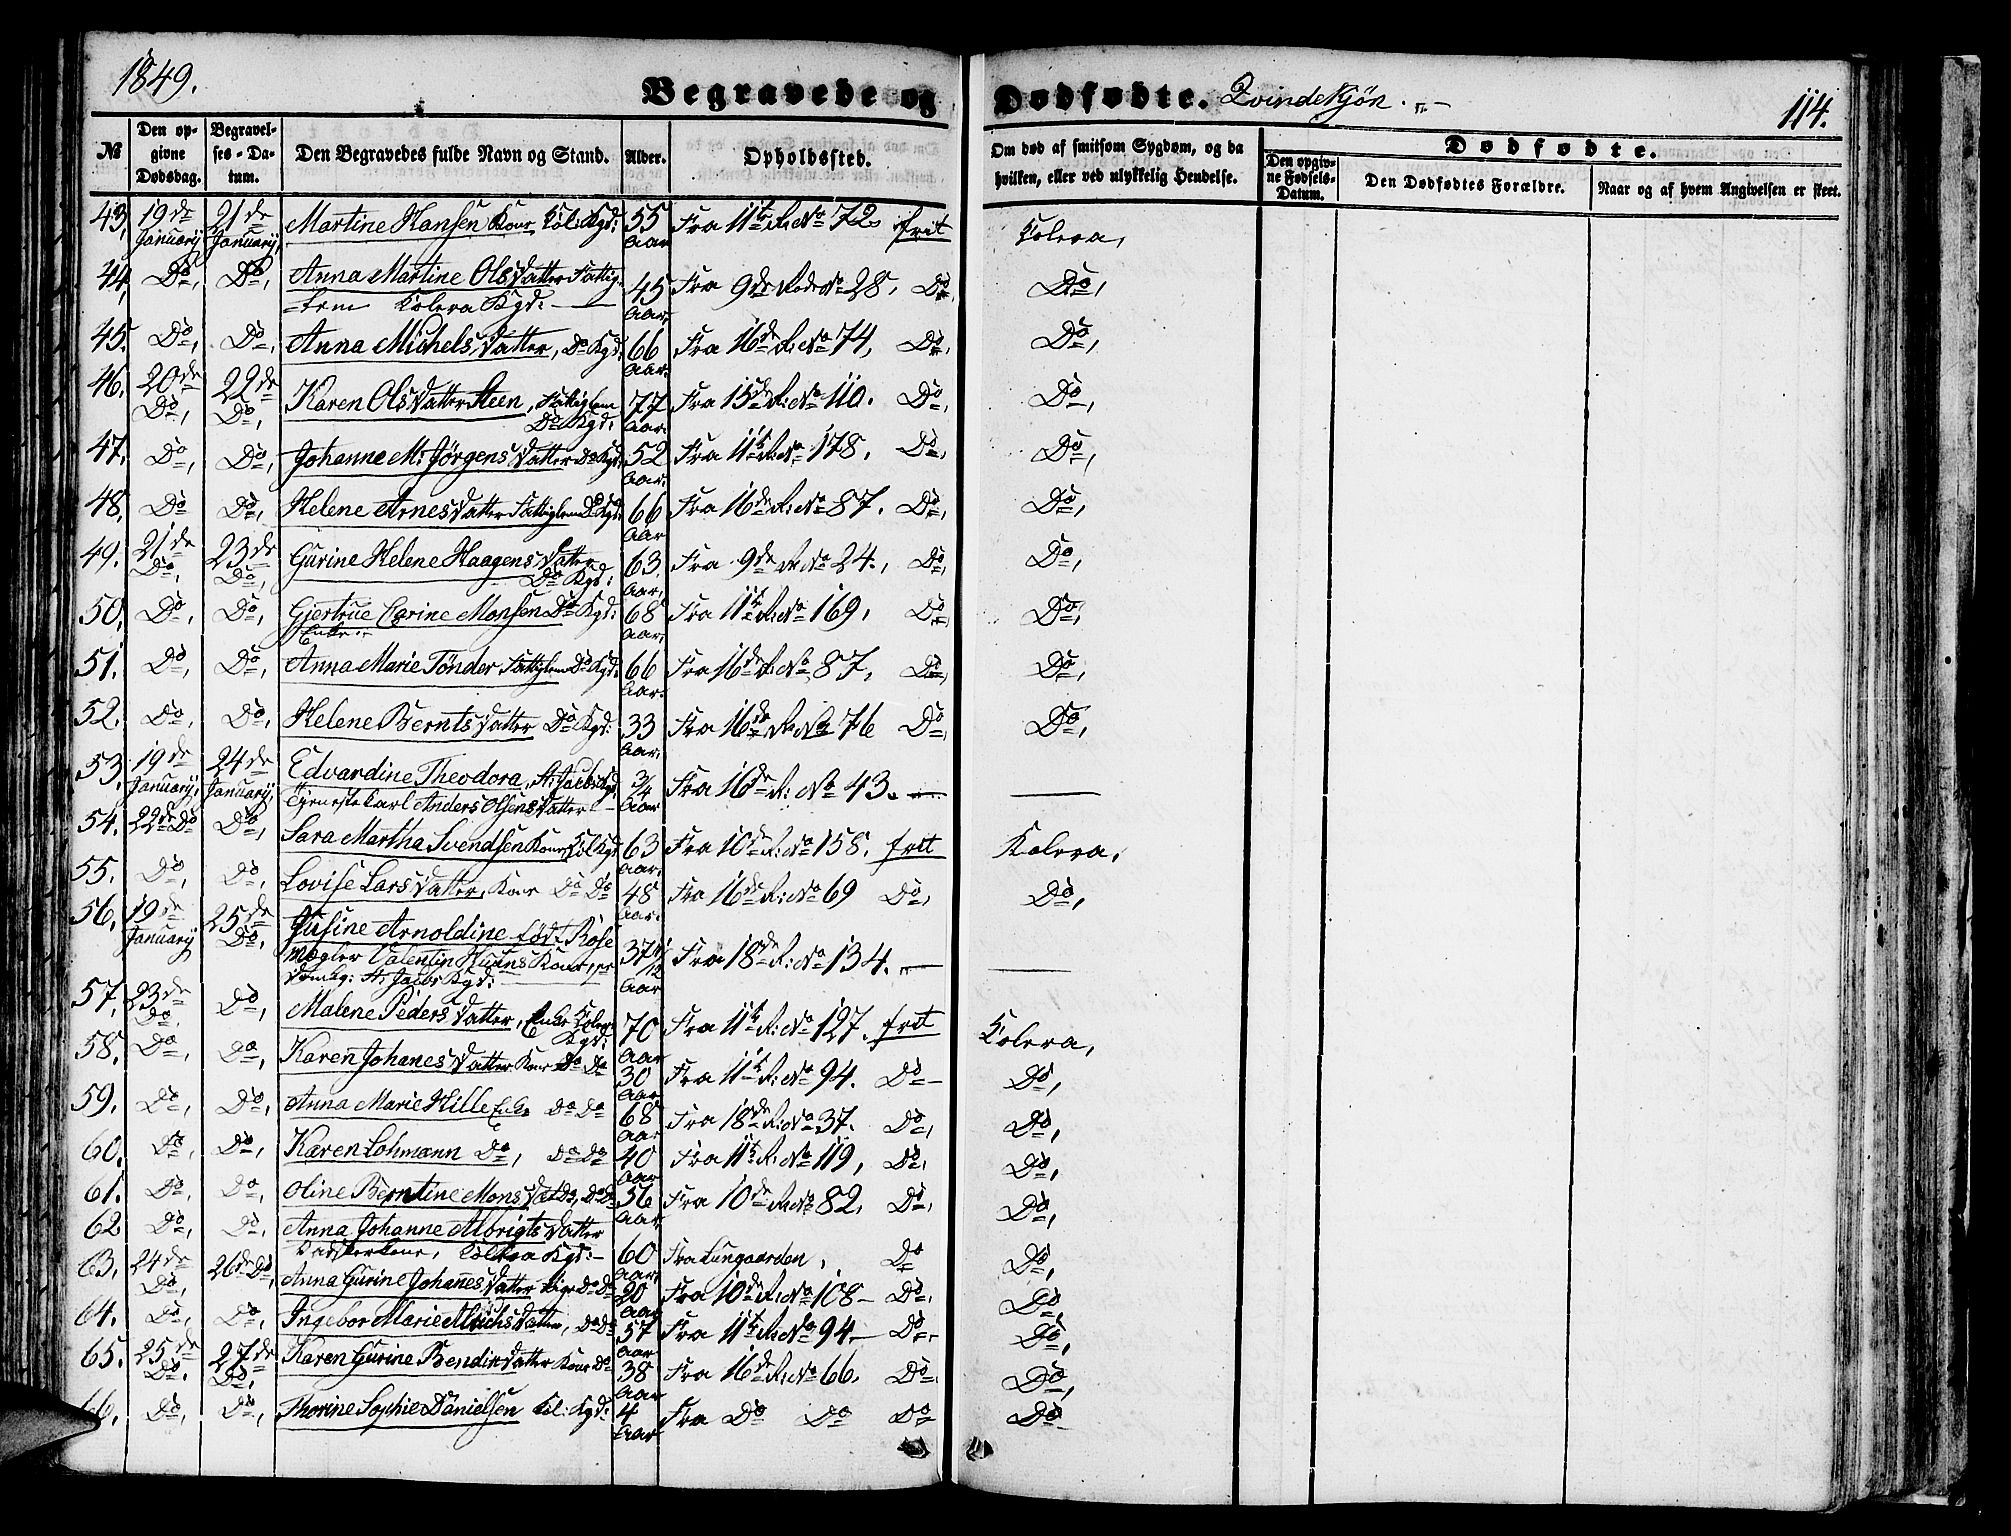 1849.
Begravede og Dødfødte. Qvindekjøn.
114.
№ Den opgivne Dødsdag. Begravelses-Datum. Den Begravedes fulde Navn og Stand. Alder. Opholdssted. Om død af smitsom Sygdom, og da hvilken, eller ved ulykkelig Hendelse. Dødfødte. Den opgivne Fødsels-Datum. Den Dødfødtes Forældre. Naar og af hvem Angivelsen er skeet.
43, 19de January 21de January Martine Hansen Kone, Kol: Kgd: 55 Aar Fra 11te R: No 72, frit Kolera,
44, Do, Do, Anna Martine Olsdatter Fattig-
lem Kolera Kgd: 45 Aar, Fra 9de Rode No 28, Do, Do,
45. Do, Do, Anna Michelsdatter, Do Kgd: 66 Aar. Fra 16de R: No 74, Do, Do,
46. 20de Do, 22de Do, Karen Olsdatter Steen, Fattiglem
Do Kgd: 77 Aar. Fra 15de R: No 110. Do, Do,
47. Do, Do, Johanne M: Jørgensdatter Do Kgd: 52 Aar. Fra 11te R: No 178, Do, Do,
48. Do Do, Helene Arnesdatter Fattiglem Do Kgd: 66 Aar Fra 16de R: No 87. Do, Do,
49. 21de Do, 23de Do, Gurine Helene Haagensdatter
Do Kgd: 63 Aar, Fra 9de R: No 24., Do, Do,
50, Do, Do, Gjertrue Carine Monsen Do Kgd:
Enke. 68 Aar, Fra 11te R: No 169, Do, Do,
51. Do, Do, Anna Marie Tønder Fattiglem Do Kgd: 66 Aar. Fra 16de R: No 87, Do, Do,
52. Do, Do, Helene Berntsdatter Do Kgd: 33 Aar, Fra 16de R: No 76 Do, Do,
53, 19de January, 24de January, Edvardine Theodora, St: Jacobs Kgd:
Tjenestekarl Anders Olsens Datter 3/4 Aar Fra 16de R: No 43.
54. 22de Do Do, Sara Martha Svendsen Kone Kol Kgd: 63 Aar, Fra 10de R: No 158, frit Kolera,
55. Do, Do, Lovise Larsdatter, Kone Do Do 48 Aar. Fra 16de R: No 69 Do, Do,
56, 19de January 25de Do, Jusine Arnoldine født Rose
Mægler Valentin Kone
St: Jacobs Kgd: 37 Aar Fra 18de R: No 134.
57, 23de Do, Do, Malene Pedersdatter, Enke Kolera
Kgd: 70 Aar Fra 11te R: No 127. frit Kolera,
58. Do, Do, Karen Johanesdatter Kone Do Do 30 Aar Fra 11te R: No 94. Do Do,
59. Do, Do, Anna Marie Hille Enke Do Do 68 Aar Fra 18de R: No 37. Do, Do,
60. Do, Do, Karen Lohmann Do, Do Do 40 Aar Fra 11te R: No 119, Do, Do,
61. Do, Do, Oline Berntine Monsdatter, Do Do 56 Aar Fra 10de R: No 82, Do, Do,
62 Do, Do, Anna Johanne Albrigtsdatter
Kolera Kgd: 60 Aar, Fra Lungaarden, Do Do,
63, 24de Do, 26de Do, Anna Gurine Johanesdatter Pige Do Do 20 Aar Fra 10de R: No 108 Do, Do,
64. Do, Do, Ingebor Marie datter, Do Do 57 Aar Fra 11te R: No 94 Do, Do,
65. 25de Do, 27de Do, Karen Gurine Bendixdatter Kone Do 38 Aar Fra 16de R: No 66, Do, Do,
66. Do, Do, Thorine Sophie Danielsen Kol: Kgd: 4 Aar Fra Do Do Do Do